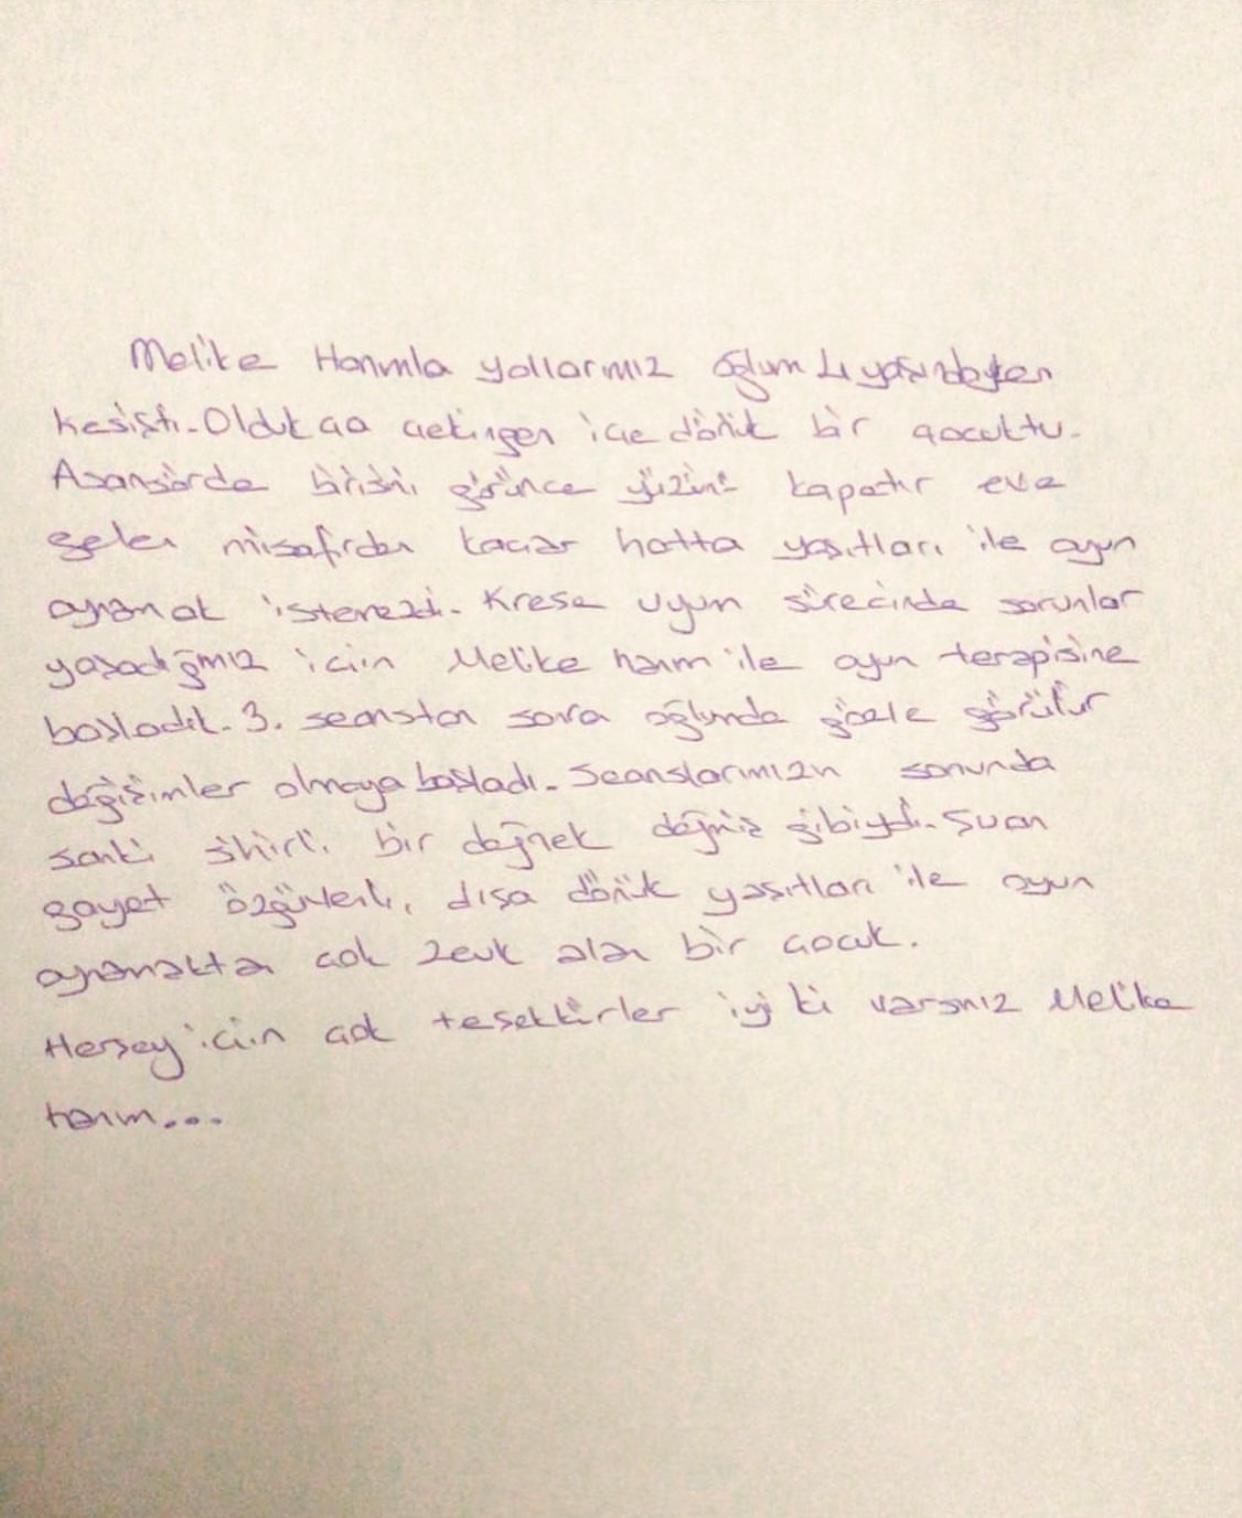 Melike Hanımla yollarımız oğlum 4 yaşındayken
kesişti. Oldukça çekingen içe dönük bir çocuktu.
Asansörde birisini görünce yüzünü kapatır eve
gelen misafirden kaçar hatta yaşıtları ile oyun
oynamak istemezdi. Kreşe uyum sürecinde sorunlar
yaşadığımız için Melike hanım ile oyun terapisine
başladık. 3. seanstan sonra oğlumda gözle görülür
değişimler olmaya başladı. Seanslarımızın sonunda
sanki sihirli bir değnek değmiş gibiydi. Şuan
gayet özgüvenli, dışa dönük yaşıtları ile oyun
oynamaktan çok zevk alan bir çocuk.
Herşey için çok teşekkürler iyi ki varsınız Melike
hanım...